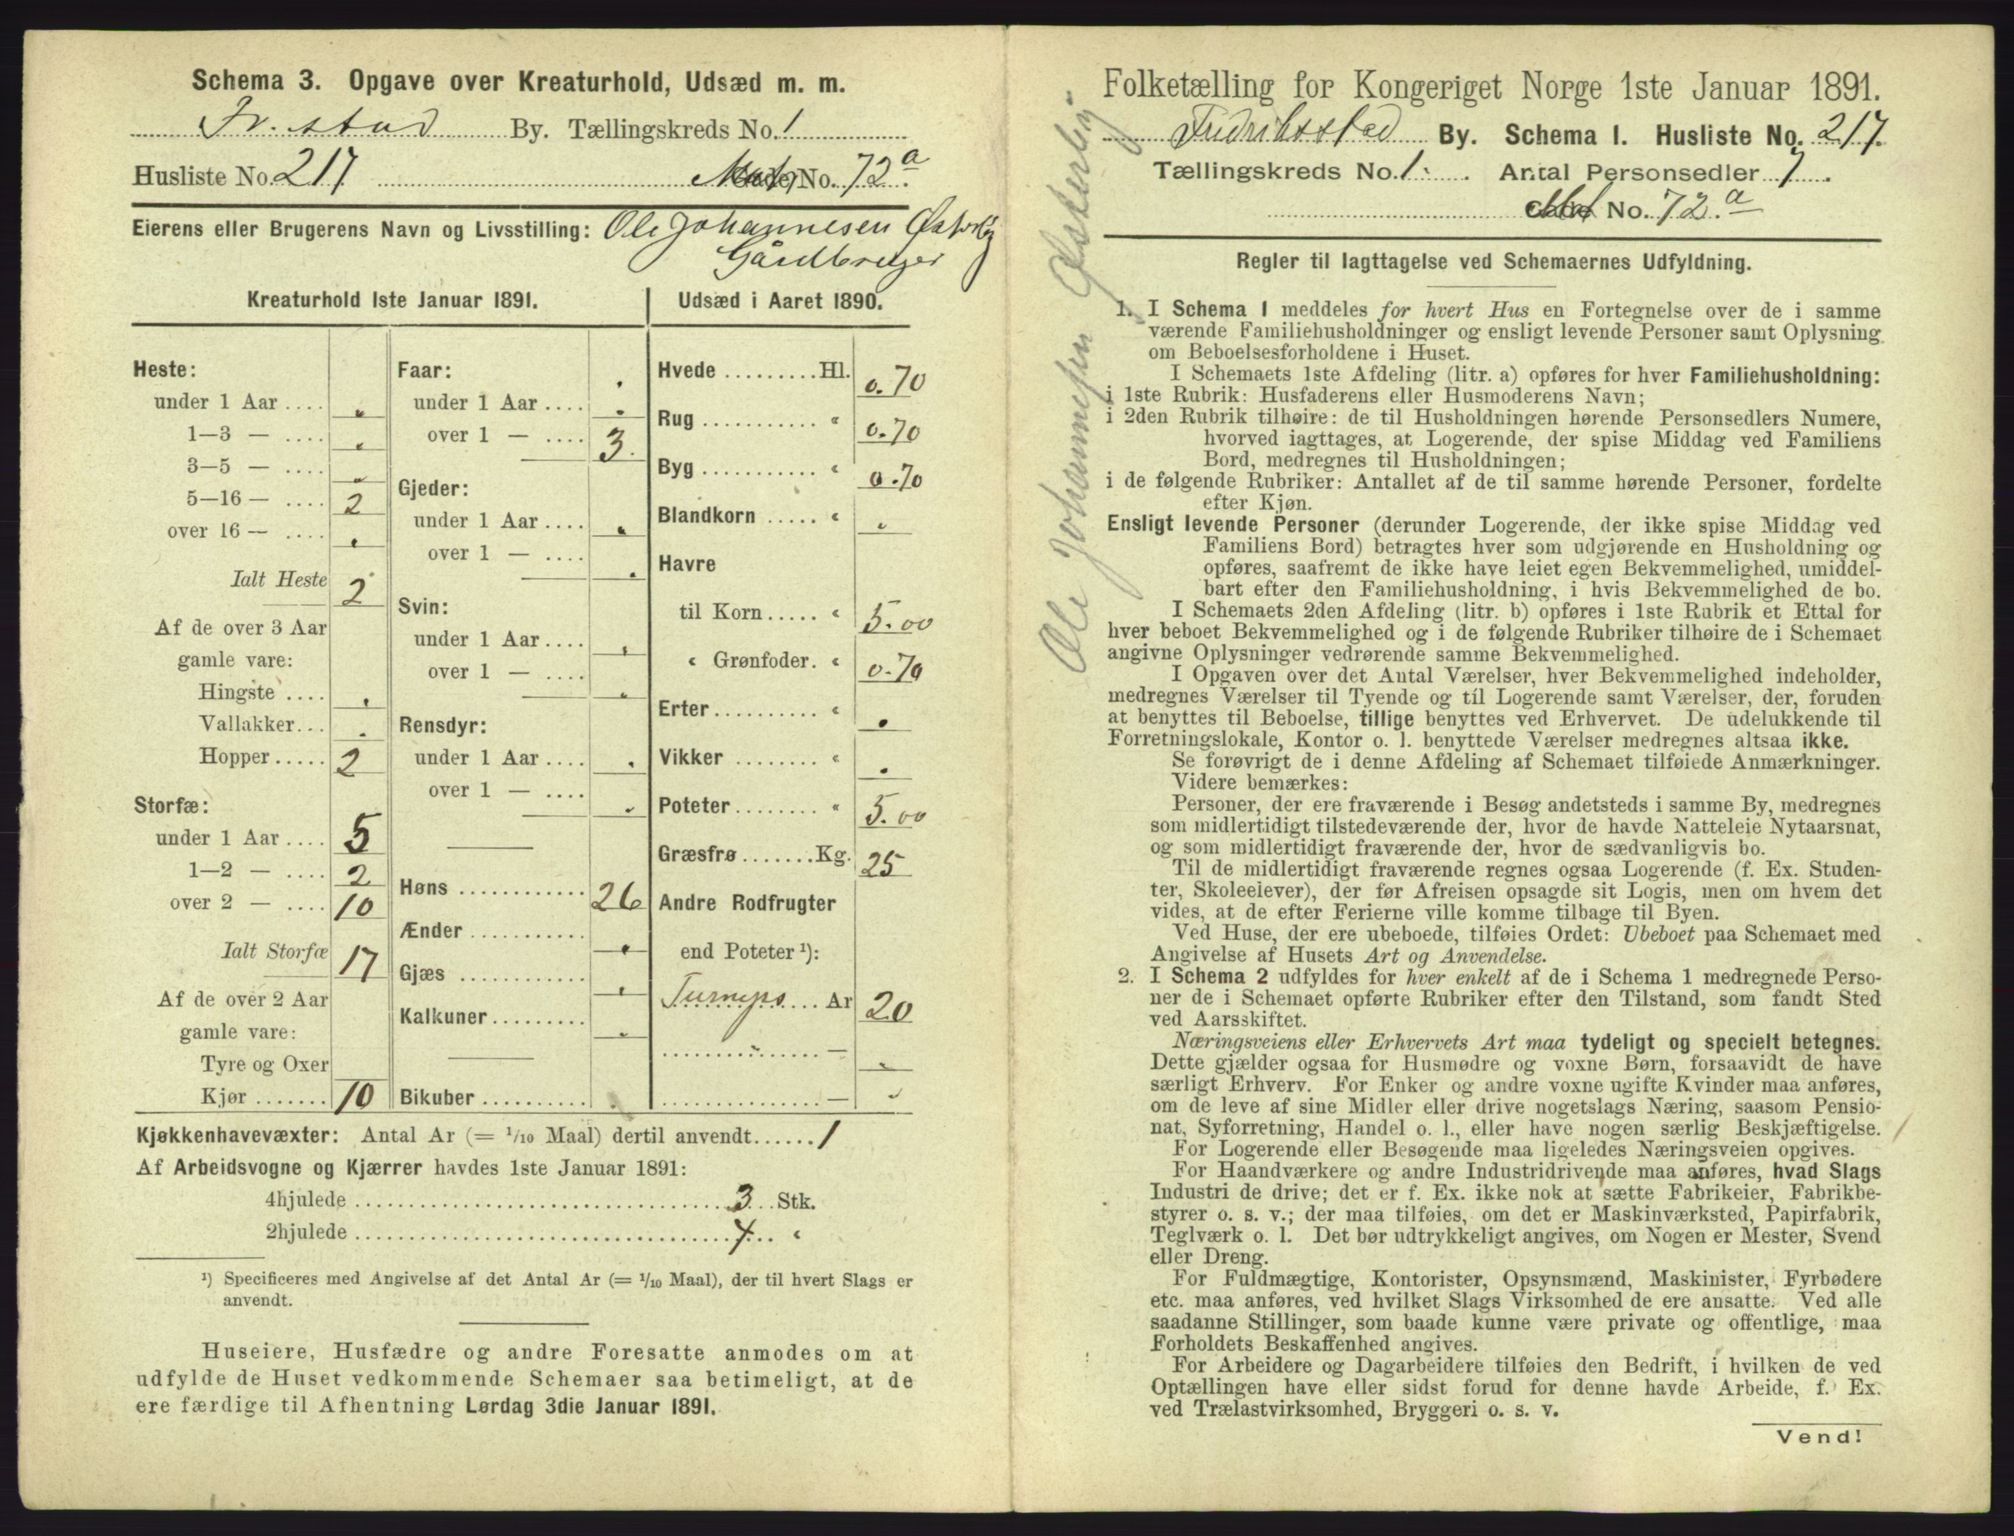 Schema 3. Opgave over Kreaturhold, Udsæd m. m.
Fr.stad By. Tællingskreds No. 1
Husliste No. 217. No. 72a
Eierens eller Brugerens Navn og Livsstilling: Ole Johannesen Østerby
Gårdbruger
Kreaturhold 1ste Januar 1891.
Heste:
under 1 Aar .... „
1—3 — .... „
3—5 — .... „
5—16 — .... 2
over 16 — .... „
Ialt Heste 2
Af de over 3 Aar
gamle vare:
Hingste .... .
Vallakker... .
Hopper ..... 2
Storfæ:
under 1 Aar .... 5
1—2 — .... 2
over 2 — .... 10
Ialt Storfæ 17
Af de over 2 Aar
gamle vare:
Tyre og Oxer
Kjør ....... 10
Faar: .
under 1 Aar .... .
over 1 — .... 3.
Gjeder:
under 1 Aar .... .
over 1 — .... .
Svin:
under 1 Aar .... .
over 1 — .... .
Rensdyr:
under 1 Aar .... .
over 1 — .... .
Høns ............ 26
Ænder ........... .
Gjæs ............ .
Kalkuner ......... .
Bikuber .......... .
Udsæd i Aaret 1890.
Hvede ......... Hl. 0.70
Rug ........... „ 0.70
Byg ........... „ 0.70
Blandkorn ..... „ .
Havre
til Korn ..... „ 5.00
„ Grønfoder. „ 0.70
Erter .......... „ .
Vikker ........ „ .
Poteter ........ „ 5.00
Græsfrø ....... Kg. 25
Andre Rodfrugter
end Poteter ¹):
Turnips ... Ar 20
................ — „
................ — „
Kjøkkenhavevæxter: Antal Ar (= 1/10 Maal) dertil anvendt ...... 1
Af Arbeidsvogne og Kjærrer havdes 1ste Januar 1891:
4hjulede ........................................ 3 ... Stk.
2hjulede ........................................ 4 ... „
¹) Specificeres med Angivelse af det Antal Ar (= 1/10 Maal), der til hvert Slags er
anvendt.
Huseiere, Husfædre og andre Foresatte anmodes om at
udfylde de Huset vedkommende Schemaer saa betimeligt, at de
ere færdige til Afhentning Lørdag 3die Januar 1891.
Ole Johannesen Østerby
Folketælling for Kongeriget Norge 1ste Januar 1891.
Fredriksstad By. Schema 1. Husliste No. 217.
Tællingskreds No. 1. Antal Personsedler 7
No. 72.a
Regler til Iagttagelse ved Schemaernes Udfyldning.
1. I Schema 1 meddeles for hvert Hus en Fortegnelse over de i samme
værende Familiehusholdninger og ensligt levende Personer samt Oplysning
om Beboelsesforholdene i Huset.
I Schemaets 1ste Afdeling (litr. a) opføres for hver Familiehusholdning:
i 1ste Rubrik: Husfaderens eller Husmoderens Navn;
i 2den Rubrik tilhøire: de til Husholdningen hørende Personsedlers Numere,
hvorved iagttages, at Logerende, der spise Middag ved Familiens
Bord, medregnes til Husholdningen;
i de følgende Rubriker: Antallet af de til samme hørende Personer, fordelte
efter Kjøn.
Ensligt levende Personer (derunder Logerende, der ikke spise Middag ved
Familiens Bord) betragtes hver som udgjørende en Husholdning og
opføres, saafremt de ikke have leiet egen Bekvemmelighed, umiddel-
bart efter den Familiehusholdning, i hvis Bekvemmelighed de bo.
I Schemaets 2den Afdeling (litr. b) opføres i 1ste Rubrik et Ettal for
hver beboet Bekvemmelighed og i de følgende Rubriker tilhøire de i Schemaet
angivne Oplysninger vedrørende samme Bekvemmelighed.
I Opgaven over det Antal Værelser, hver Bekvemmelighed indeholder,
medregnes Værelser til Tyende og til Logerende samt Værelser, der, foruden
at benyttes til Beboelse, tillige benyttes ved Erhvervet. De udelukkende til
Forretningslokale, Kontor o. l. benyttede Værelser medregnes altsaa ikke.
Se forøvrigt de i denne Afdeling af Schemaet tilføiede Anmærkninger.
Videre bemærkes:
Personer, der ere fraværende i Besøg andetsteds i samme By, medregnes
som midlertidigt tilstedeværende der, hvor de havde Natteleie Nytaarsnat,
og som midlertidigt fraværende der, hvor de sædvanligvis bo.
Til de midlertidigt fraværende regnes ogsaa Logerende (f. Ex. Studen-
ter, Skoleelever), der før Afreisen opsagde sit Logis, men om hvem det
vides, at de efter Ferierne ville komme tilbage til Byen.
Ved Huse, der ere ubeboede, tilføies Ordet: Ubeboet paa Schemaet med
Angivelse af Husets Art og Anvendelse.
2. I Schema 2 udfyldes for hver enkelt af de i Schema 1 medregnede Perso-
ner de i Schemaet opførte Rubriker efter den Tilstand, som fandt Sted
ved Aarsskiftet.
Næringsveiens eller Erhvervets Art maa tydeligt og specielt betegnes.
Dette gjælder ogsaa for Husmødre og voxne Børn, forsaavidt de have
særligt Erhverv. For Enker og andre voxne ugifte Kvinder maa anføres,
om de leve af sine Midler eller drive nogetslags Næring, saasom Pensio-
nat, Syforretning, Handel o. l., eller have nogen særlig Beskjæftigelse.
For Logerende eller Besøgende maa ligeledes Næringsveien opgives.
For Haandværkere og andre Industridrivende maa anføres, hvad Slags
Industri de drive; det er f. Ex. ikke nok at sætte Fabrikeier, Fabrikbe-
styrer o. s. v.; der maa tilføies, om det er Maskinværksted, Papirfabrik,
Teglværk o. l. Det bør udtrykkeligt angives, om Nogen er Mester, Svend
eller Dreng.
For Fuldmægtige, Kontorister, Opsynsmænd, Maskinister, Fyrbødere
etc. maa anføres, ved hvilket Slags Virksomhed de ere ansatte. Ved alle
saadanne Stillinger, som baade kunne være private og offentlige, maa
Forholdets Beskaffenhed angives.
For Arbeidere og Dagarbeidere tilføies den Bedrift, i hvilken de ved
Optællingen have eller sidst forud for denne havde Arbeide, f. Ex.
ved Trælastvirksomhed, Bryggeri o. s. v.
Vend!